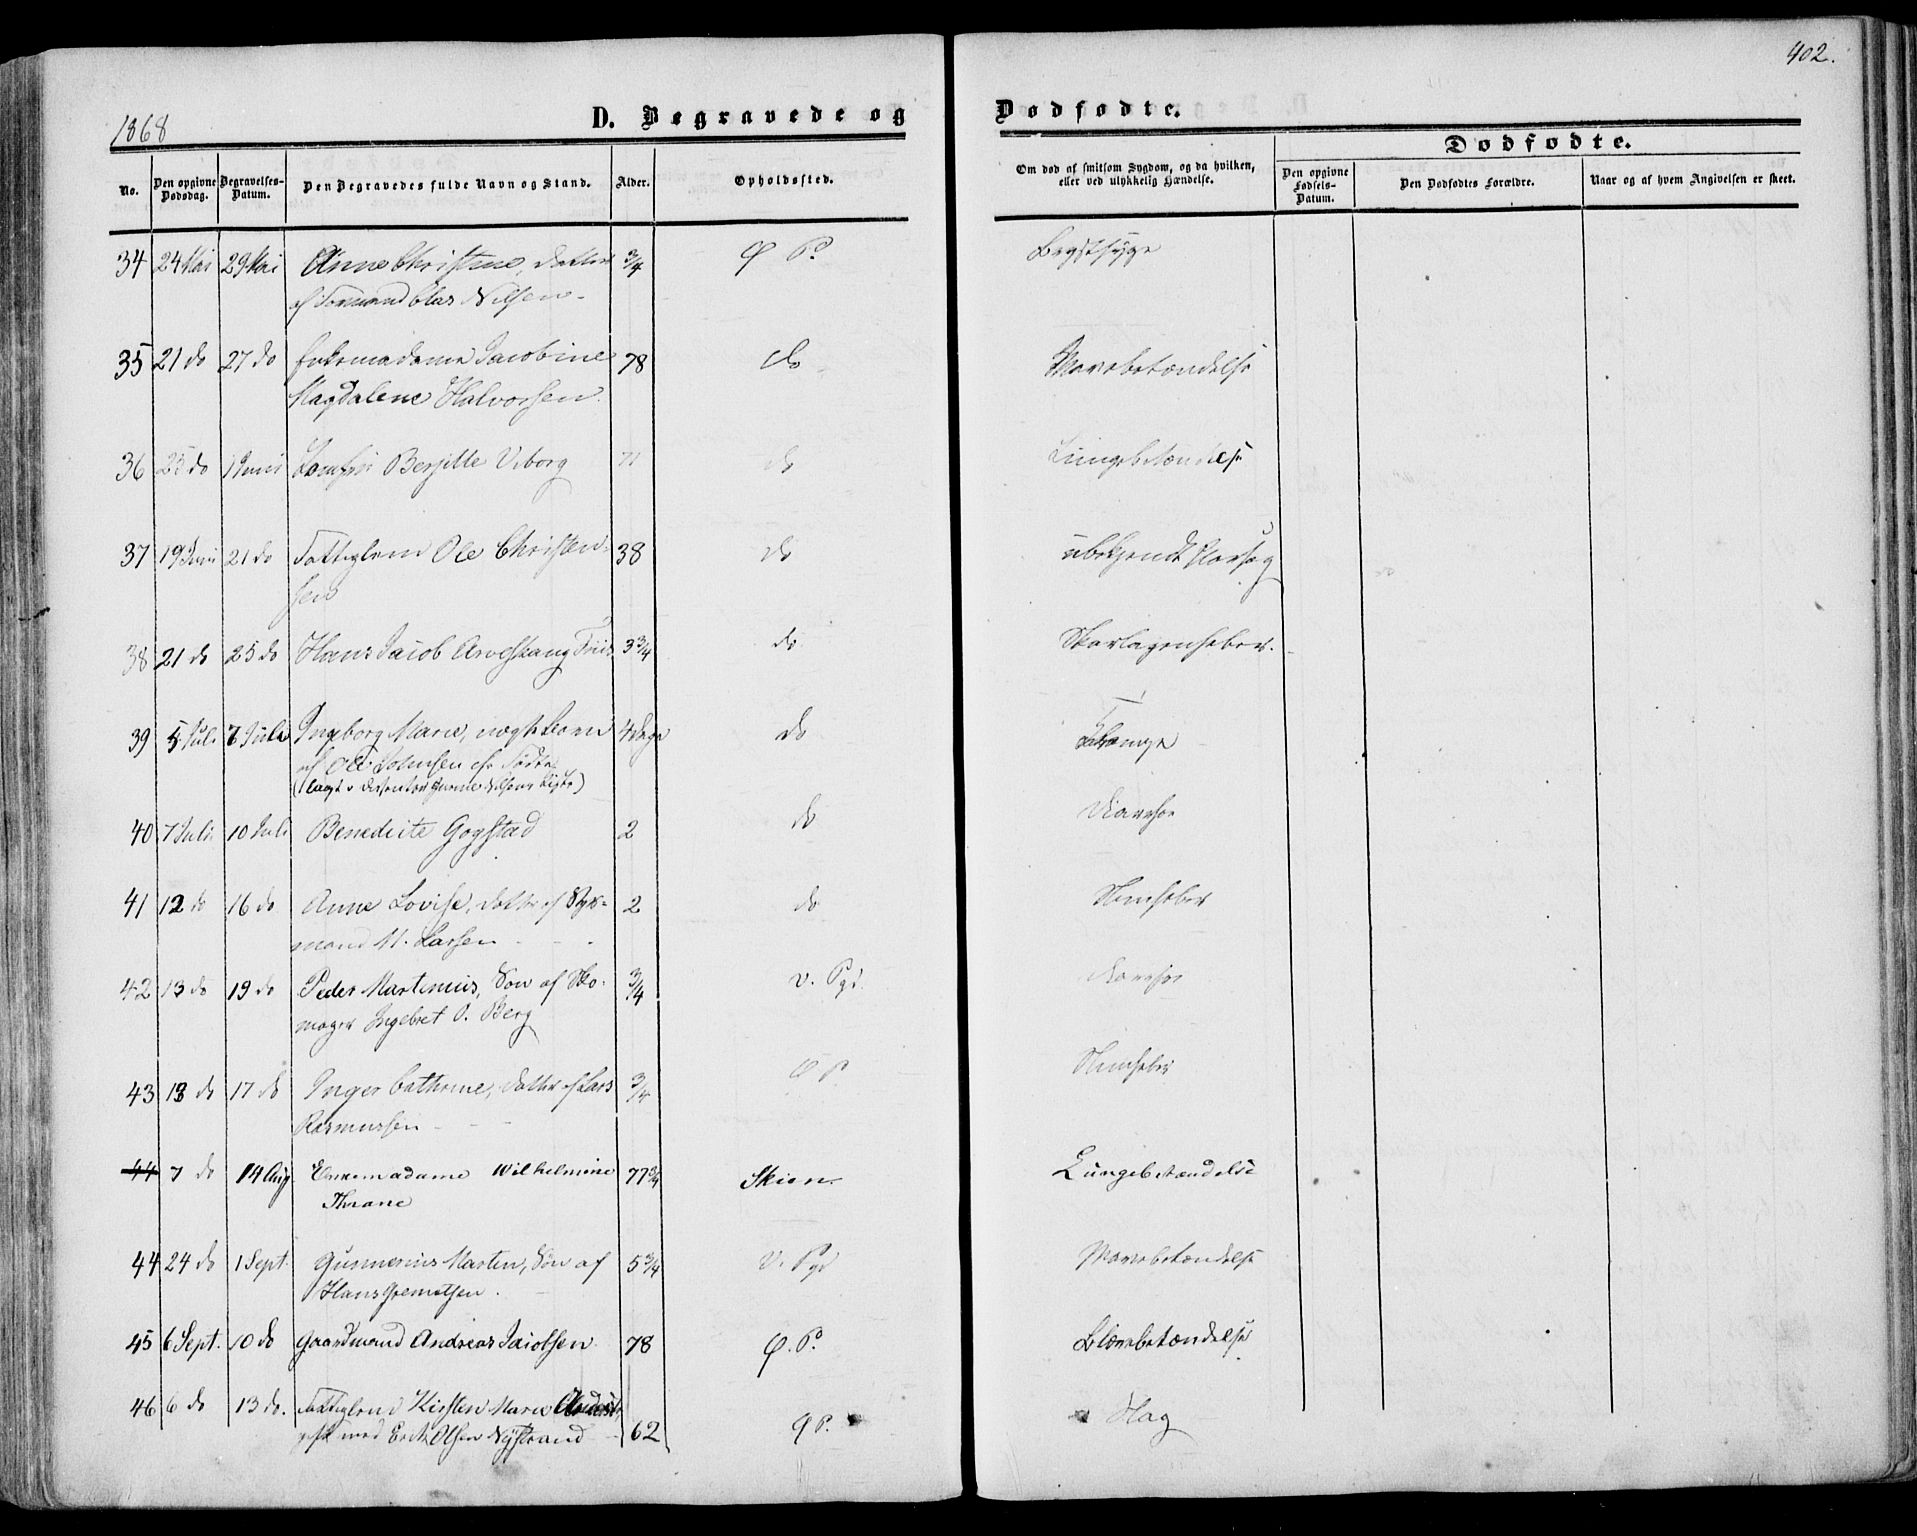 402.
1868
D. Begravede og Dødfødte.
Dødfødte.
No.
Den opgivne Dødsdag.
Begravelses-Datum.
Den Begravedes fulde Navn og Stand.
Alder.
Opholdssted.
Om død af smitsom Sygdom, og da hvilken, eller ved ulykkelig Hændelse.
Den opgivne Fødsels-Datum.
Den Dødfødtes Forældre.
Naar og af hvem Angivelsen er skeet.
34 24 Mai 29 Mai Anne Christine, Datter 3/4 Ø P. Brystsyge
af Nilsen
35 21 do 27 do Enkemadame Jacobine 78 do Mavebetændelse
Magdalene Halvorsen.
36 25 do 1 Juni Jomfru Berjitte Viborg 71 do Lungebetændelse
37 19 Juni 21 do Fattiglem Ole Christen- 38 do ubekjendt
sen
38 21 do 25 do Hans Jacob Friis 3 3/4 do Skarlagensfeber.
39 5 Juli 7 Juli Ingeborg Marie, uægte Barn 4 Dage do
af Ole Johnsen
40 7 Juli 10 Juli Benedicte Gogstad 2 do Diarrhoe
41 12 do 16 do Anne Lovise, Datter af Styr- 2 do
mand M. Larsen
42 13 do 19 do Peder Martinius, Søn af Sko- 3/4 v. Pgd. Diarrhoe
mager Ingebret O. Berg
43 13 do 17 do Inger Cathrine, Datter af Lars 3/4 Ø P.
Rasmussen
44 7 do 14 Aug Enkemadame Wilhelmine 77 3/4 Skien Lungebetændelse
Thrane
44 24 do 1 Sept. Gunnerius Martin, Søn af 5 3/4 V. Pgd Mavebetændelse
Hans
45 6 Sept. 10 do Gaardmand Andreas Jacobsen 78 Ø. P. Blærebetændelse
46 6 do 13 do. Fattiglem Kirsten Marie
gift med Erik Olsen Nystrand 62 Ø P. Slag